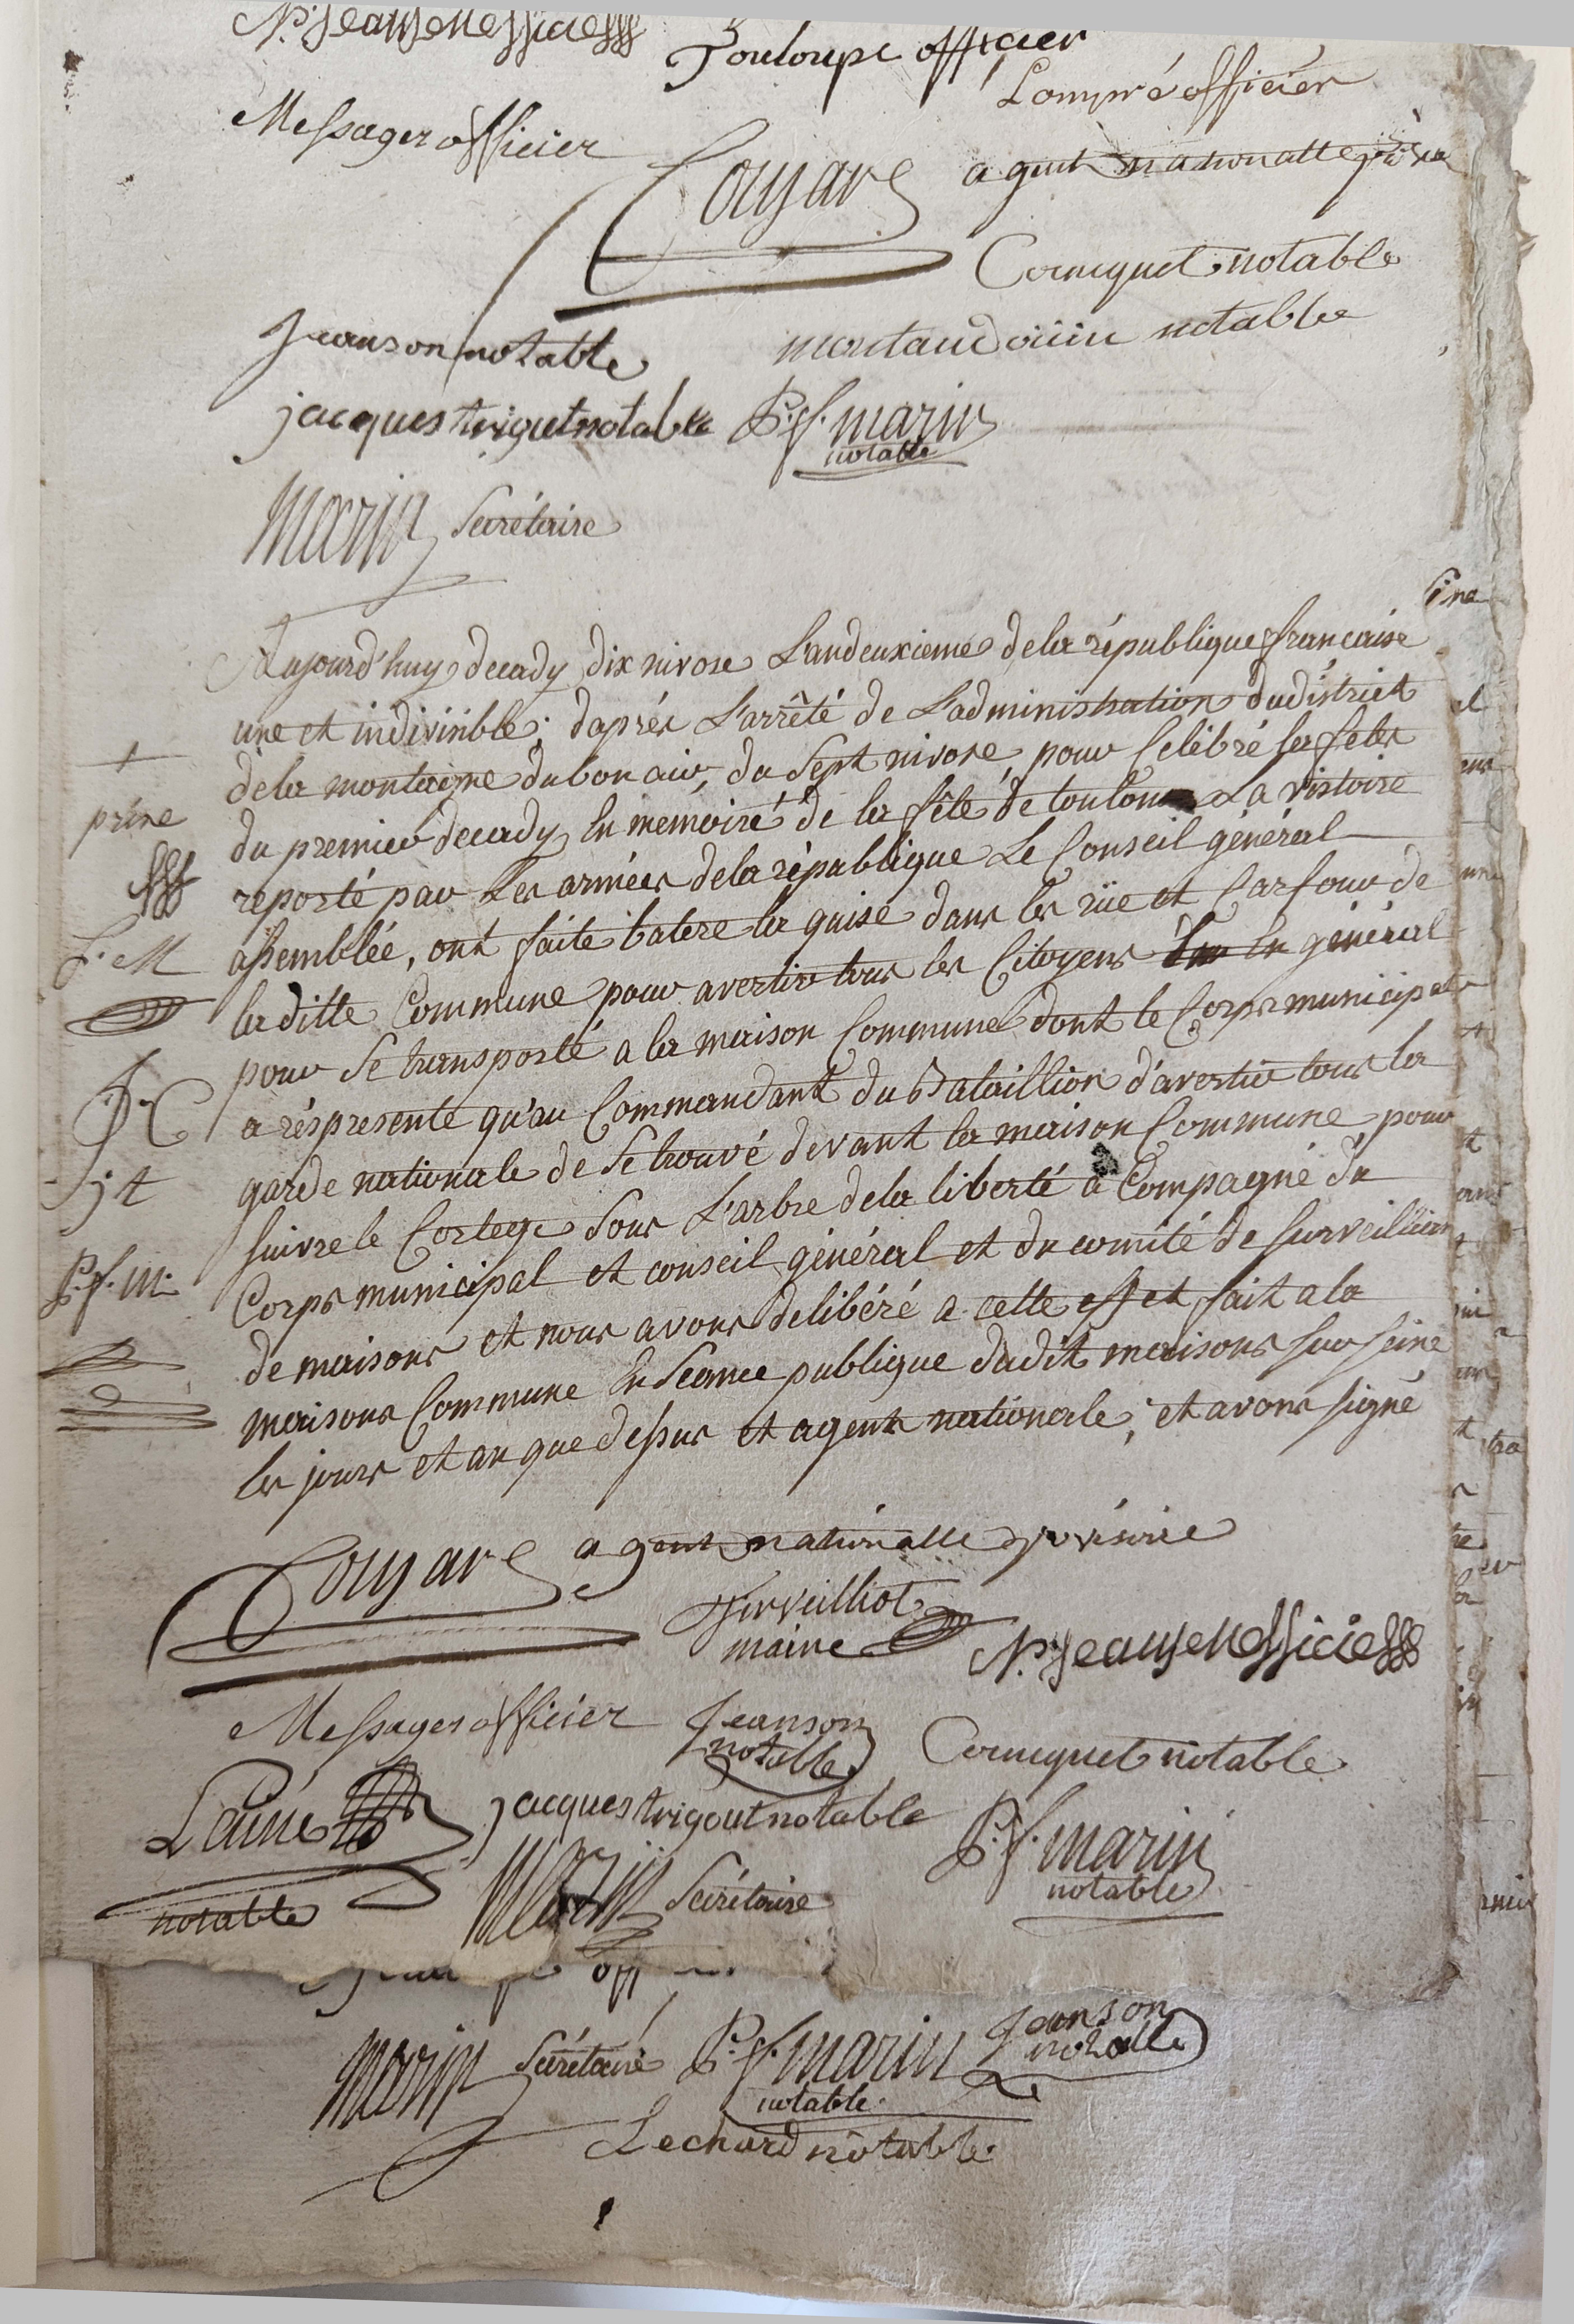 N.P. Jeansen officier
Touloupe officier
Lompré officier
Messager officier
Couyard agent nationalle
Corniquet notable
Jeanson notable
montaudouin notable
jacques trigout notable P. f. marin
notable
Marin Secrétaire
Aujourd'huy decady dix nivose L'an deuxieme de la république francaise
une et indivisible, daprés L'arrêté de L'administration du district
de la montaigne du bon air, du Sept nivose, pour Celébré les fetes
du premier decady En memoiré de la fêté de toulon La vistoire
reporté par Les armées de la république Le Conseil général
assemblée, ont faite batere la quise dans les rüe et Carfour de
la ditte Commune pour avertir tous les Citoyens En général
pour Se transporté a la maison Commune dont le Corps municipal
a réspresente qu'au Commandant du Bataillion d'avertir tous la
garde nationale de Se trouvé devant la maison Commune pour
Suivre le Cortege Sous L'arbre de la liberté a Compagné du
Corps municipal et conseil général et du comité de Surveillian
de maisons et nous avons delibéré a cette effet fait a la
maisons Commune En Séance publique dudit maisons sur seine
les jours et an que dessus et agent nationale, et avons signé
prene
f. M
J. C
j t
P. f. m.
Couyard agent nationalle provisoire
Serveilliot
maire
N.P. Jeansen officier
Messager officier
Jeanson
notable
Corniquet notable
Lainé
notable
jacques trigout notable
P. f. marin
notable
Marin Secrétaire
Marin Secrétaire P. f. marin
notable
Jeanson
notable
Lechard notable